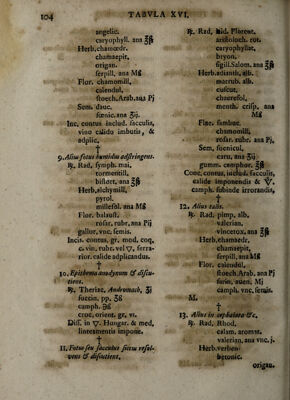 104 TABVLA XVI.
angelic.
caryophyll. ana ℥ß
Herb. chamædr.
chamaepit.
origan.
serpill. ana Mß
Flor. chamomill.
calendul.
stoech. Arab. ana Pj
Sem. dauc.
fœnic. ana ʒij.
Inc. contus includ. sacculis,
vino calido imbutis, &
adplic.
†
9. Alius fotus humidus adstringens.
℞. Rad. symph. mai.
tormentill.
bistort. ana ℥ß
Herb. alchymill.
pyrol.
millefol. ana Mß
Flor. balaust.
rosar. rubr. ana Pij
gallur. vnc. semis.
Incis. contus. gr. mod. coq.
c. vin. rubr. vel ▽. ferra-
rior. calide adplicandus.
†
10. Epithema anodynum & discu-
tiens.
℞. Theriac. Andromach. ℥j
succin. pp. ʒß
camph. ℈ß
croc. orient. gr. vi.
Diss. in ▽. Hungar. & med.
linteamentis imponit.
†
11. Fotus seu sacculus siccus resol-
vens & discutiens.
℞. Rad. irid. Florent.
aristoloch. rot.
caryophyllat.
bryon.
sigill. Salom. ana ℥ß
Herb. adianth. alb.
marrub. alb.
cuscut.
chaerefol.
menth. crisp. ana
Mß
Flor. sambuc.
chamomill.
rosar. rubr. ana Pj.
Sem. foenicul.
caru, ana ʒiij
gumm. camphor. ℥ß
Conc. contus. includ. sacculis,
calide imponendis &
camph. subinde irrorandis.
†
12. Alius talis.
℞. Rad. pimp. alb.
valerian.
vincetox. ana ℥ß
Herb. chamaedr.
chamaepit.
serpill. ana Mß
Flor. calendul.
stoech. Arab. ana Pj
furin. auen. Mj
camph. vnc. semis.
M.
†
13. Alius in cephalæa &c.
℞. Rad. Rhod.
calam. aromat.
valerian. ana vnc. j.
Herb. verben
betonic.
origan.